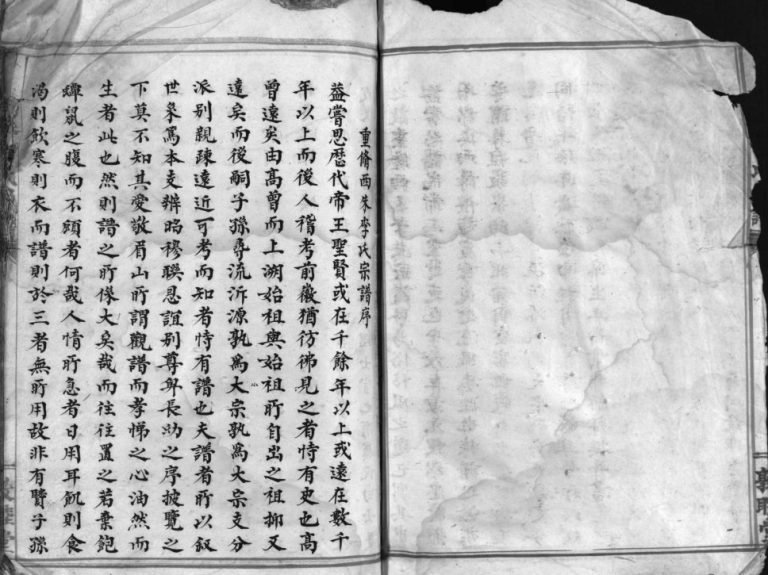 重脩西朱李氏宗譜序
葢嘗思歷代帝王聖賢或在千餘年以上或遠在數千
年以上而後人稽考前徽猶彷彿見之者恃有史也高
曾遠矣由高曾而上溯始祖與始祖所自出之祖抑又
遠矣而後嗣子孫尋流泝源孰爲大宗孰爲大宗支分
派别親疎遠近可考而知者恃有譜也夫譜者所以叙
世系爲本支辨昭穆聯恩誼别尊卑長幼之序披覽之
下莫不知其愛敬眉山所謂觀譜而孝悌之心油然而
生者此也然則譜之所係大矣哉而往往置之若棄飽
蟫鼠之腹而不顧者何哉人情所急者日用耳飢則食
渴則飲寒則衣而譜則於三者無所用故非有賢子孫
敦睦堂